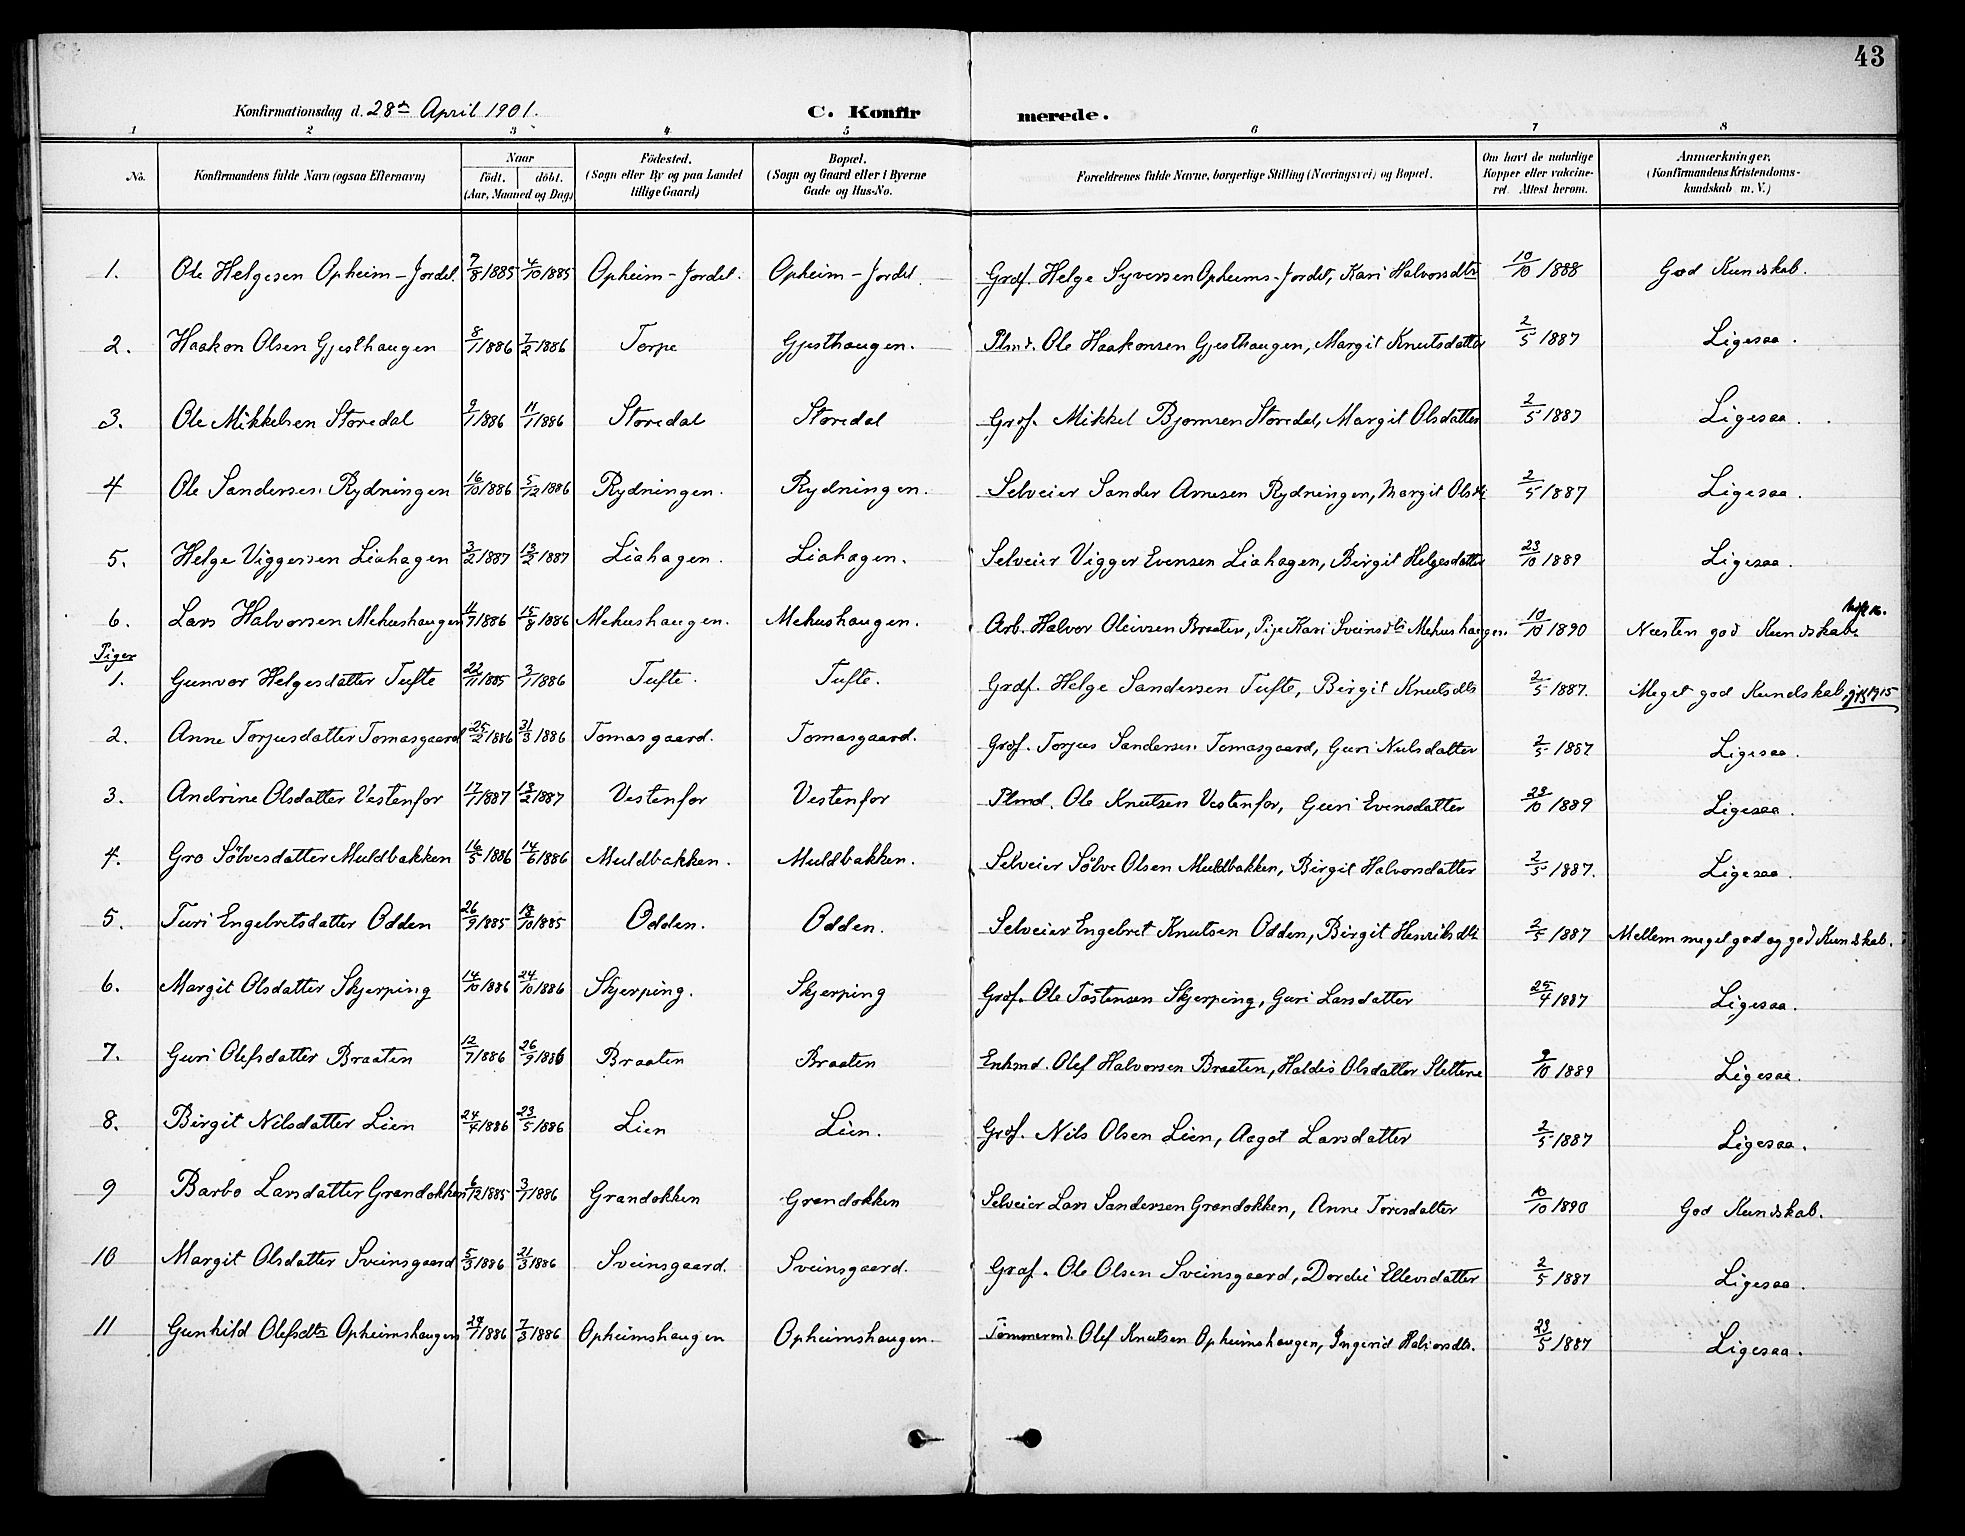 43
Konfirmationsdag d. 28de April 1901. C. Konfirmerede.
1 2 3 4 5 6 7 8
No. Konfirmandens fulde Navn (ogsaa Efternavn) Naar født. døbt. (Aar, Maaned og Dag) Fødested. (Sogn eller By og paa Landet tillige Gaard) Bopæl. (Sogn og Gaard eller i Byerne Gade og Hus-No. Forældrenes fulde Navne, borgerlige Stilling (Næringsvei) og Bopæl. Om havt de naturlige Kopper eller vakcineret. Attest herom. Anmærkninger. (Konfirmandens Kristendomskundskab m. V.)
1. Ole Helgesen Opheim-Jordet. 7/8 1885 4/10 1885 Opheim-Jordet. Opheim-Jordet. Grdf. Helge Syversen Opheims-Jordet, Kari Halvorsdtr 10/10 1888 God Kundskab.
2. Haakon Olsen Gjesthaugen 8/1 1886 7/2 1886 Torpe Gjesthaugen. Plmd. Ole Haakonsen Gjesthaugen, Margit Knutsdatter 2/5 1887 Ligesaa.
3. Ole Mikkelsen Storedal 9/1 1886 11/1 1886 Storedal Storedal Grdf. Mikkel Bjornsen Storedal, Margit Olsdatter 2/5 1887 Ligesaa.
4 Ole Sandersen Rydningen 16/10 1886 5/12 1886 Rydningen. Rydningen. Selveier Sander Arnesen Rydningen, Margit Olsdtr 2/5 1887 Ligesaa.
5. Helge Viggersen Liahagen 3/2 1887 13/2 1887 Liahagen. Liahagen. Selveier Vigger Evensen Liahagen, Birgit Helgesdatter 23/10 1889 Ligesaa.
6. Lars Halvorsen Mehushaugen 11/7 1886 15/8 1886 Mehushaugen. Mehushaugen. Arb. Halvor Oleivsen Braaten, Pige Kari Sveinsdtr Mehushaugen. 10/10 1890 Næsten god Kundskab.
Piger
1. Gunvor Helgesdatter Tufte 22/11 1885 3/1 1886 Tufte. Tufte. Grdf. Helge Sandersen Tufte, Birgit Knutsdtr 2/5 1887. Meget god Kundskab. 1915
2. Anne Torjusdatter Tomasgaard 25/2 1886 31/3 1886 Tomasgaard. Tomasgaard. Grdf. Torjus Sandersen Tomasgaard, Guri Nilsdatter 2/5 1887 Ligesaa.
3. Andrine Olsdatter Vestenfor 17/1 1887 13/2 1887 Vestenfor Vestenfor Plmd. Ole Knutsen Vestenfor, Guri Evensdatter 23/10 1889 Ligesaa.
4. Gro Sölvesdatter Muldbakken 16/5 1886 14/6 1886 Muldbakken. Muldbakken. Selveier Sölve Olsen Muldbakken, Birgit Halvorsdatter 2/5 1887. Ligesaa.
5. Turi Engebretsdatter Odden 26/9 1885 18/10 1885 Odden. Odden. Selveier Engebret Knutsen Odden, Birgit Henriksdtr 2/5 1887 Mellem meget god og god Kundskab.
6. Margit Olsdatter Skjerping 14/10 1886 24/10 1886 Skjerping. Skjerping Grdf. Ole Tostensen Skjerping, Guri Larsdatter 25/4 1887 Ligesaa.
7. Guri Olefsdatter Braaten 12/7 1886 26/9 1886 Braaten Braaten Enkmd. Olef Halvorsen Braaten, Haldis Olsdatter Slettene 9/10 1889 Ligesaa.
8. Birgit Nilsdatter Lien 24/4 1886 23/5 1886 Lien Lien. Grdf. Nils Olsen Lien, Aagot Larsdatter 2/5 1887 Ligesaa.
9 Barbo Larsdatter Grandokken 6/12 1885 3/1 1886 Grandokken Grandokken Selveier Lars Sandersen Grandokken, Anne Toresdatter 10/10 1890 God Kundskab.
10 Margit Olsdatter Sveinsgaard 5/3 1886 21/3 1886 Sveinsgaard. Sveinsgaard. Grdf. Ole Olsen Sveinsgaard, Dordei Ellevsdatter 2/5 1887 Ligesaa.
11 Gunhild Olefsdtr Opheimshaugen 29/1 1886 7/3 1886 Opheimshaugen Opheimshaugen. Tömmermd. Olef Knutsen Opheimshaugen, Ingerid Halvorsdtr. 23/5 1887 Ligesaa.